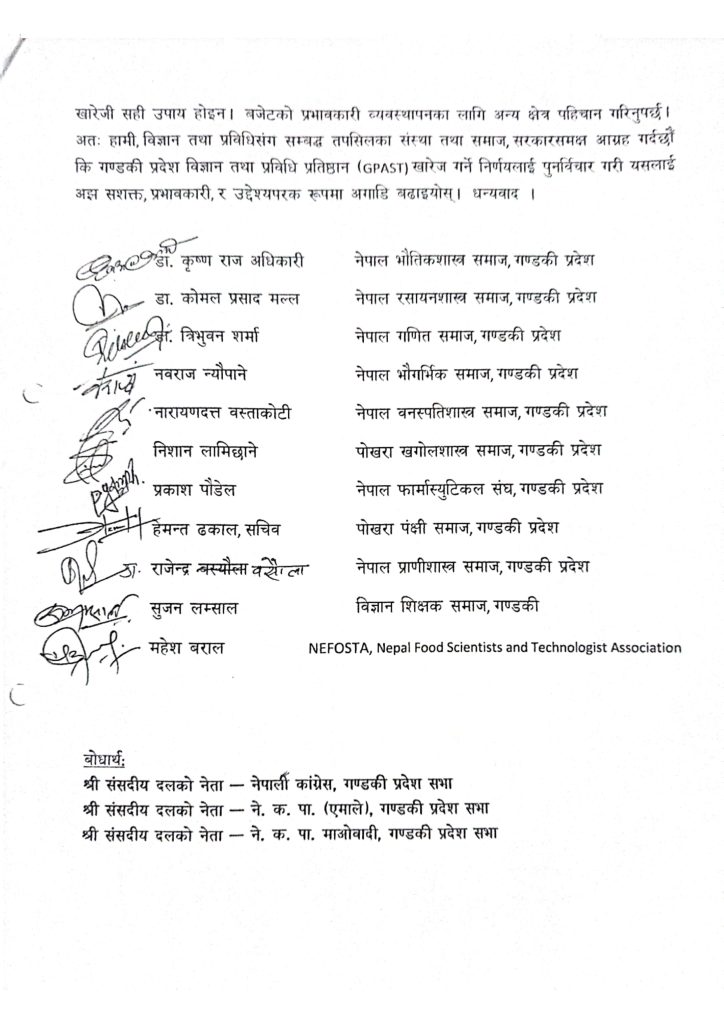 खारेजी सही उपाय होइन। बजेटको प्रभावकारी व्यवस्थापनका लागि अन्य क्षेत्र पहिचान गरिनुपर्छ।
अतः हामी, विज्ञान तथा प्रविधिसंग सम्बद्ध तपसिलका संस्था तथा समाज, सरकारसमक्ष आग्रह गर्दछौं
कि गण्डकी प्रदेश विज्ञान तथा प्रविधि प्रतिष्ठान (GPAST) खारेज गर्ने निर्णयलाई पुनर्विचार गरी यसलाई
अझ सशक्त, प्रभावकारी, र उद्देश्यपरक रूपमा अगाडि बढाइयोस्। धन्यवाद ।
डा. कृष्ण राज अधिकारी नेपाल भौतिकशास्त्र समाज, गण्डकी प्रदेश
डा. कोमल प्रसाद मल्ल नेपाल रसायनशास्त्र समाज, गण्डकी प्रदेश
डा. त्रिभुवन शर्मा नेपाल गणित समाज, गण्डकी प्रदेश
नवराज न्यौपाने नेपाल भौगर्भिक समाज, गण्डकी प्रदेश
नारायणदत्त वस्ताकोटी नेपाल वनस्पतिशास्त्र समाज, गण्डकी प्रदेश
निशान लामिछाने पोखरा खगोलशास्त्र समाज, गण्डकी प्रदेश
प्रकाश पौडेल नेपाल फार्मास्युटिकल संघ, गण्डकी प्रदेश
हेमन्त ढकाल, सचिव पोखरा पंक्षी समाज, गण्डकी प्रदेश
डा. राजेन्द्र बस्यौला बसौला नेपाल प्राणीशास्त्र समाज, गण्डकी प्रदेश
सुजन लम्साल विज्ञान शिक्षक समाज, गण्डकी
महेश बराल NEFOSTA, Nepal Food Scientists and Technologist Association
बोधार्थ:
श्री संसदीय दलको नेता — नेपाली कांग्रेस, गण्डकी प्रदेश सभा
श्री संसदीय दलको नेता — ने. क. पा. (एमाले), गण्डकी प्रदेश सभा
श्री संसदीय दलको नेता — ने. क. पा. माओवादी, गण्डकी प्रदेश सभा